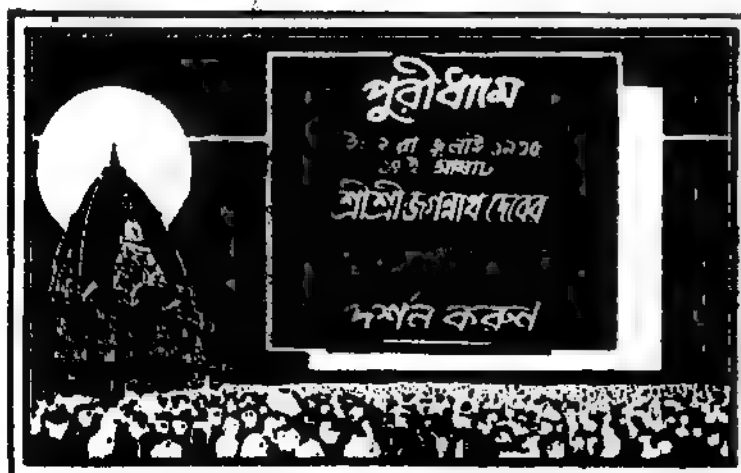 পুরীধামে
২রা জুলাই ১৯৩৫
১৭ই আষাঢ়
শ্রীশ্রীজগন্নাথ দেবের
দর্শন করুন